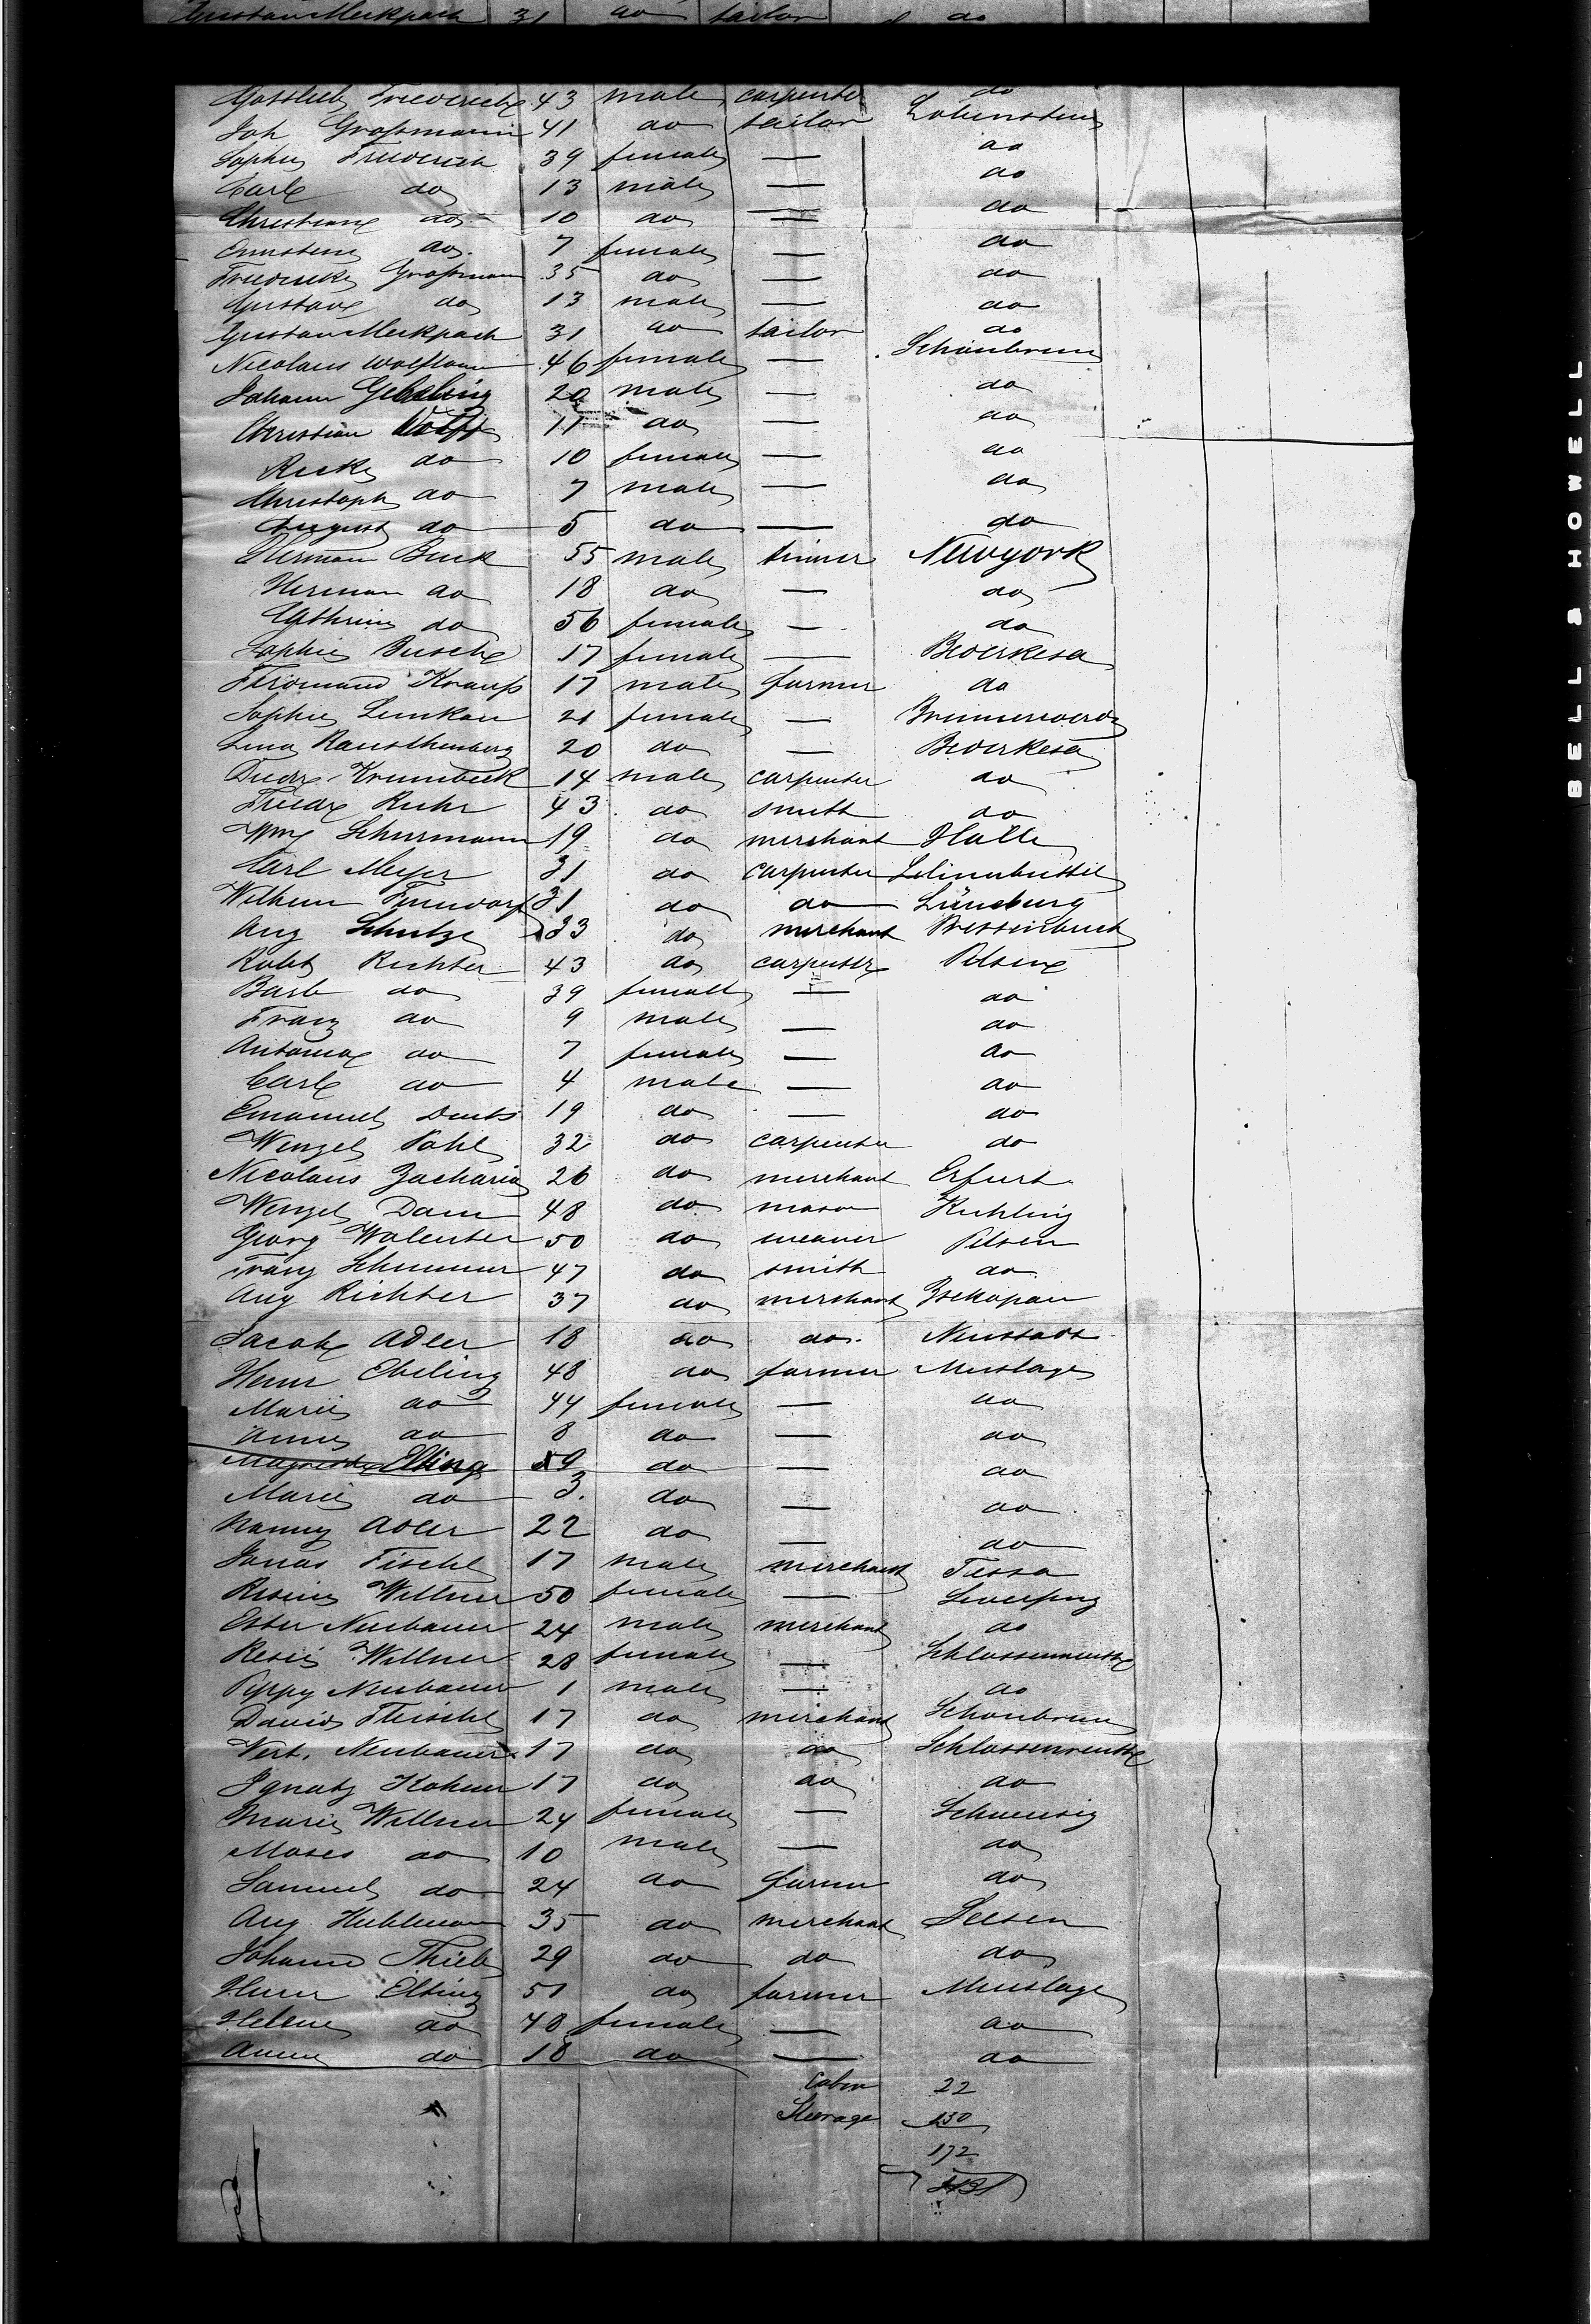 Gustav Meckpach 31 do tailor do
Gottlieb Friederich 43 male carpenter do
Joh Großmann 41 do tailor Lobenstein
Sophie Friederich 39 female — do
Carl do 13 male — do
Christian do 10 do — do
Ernstine do. 7 female — do
Friederike Großmann 35 do — do
Gustav do 13 male — do
Gustav Meckpach 31 do tailor do
Nicolaus Wolfram 46 female — Schönbrunn
Johann Gebeling 20 male — do
Christian Wolff 11 do — do
Rieke do 10 female — do
Christoph do 7 male — do
August do 5 do — do
Herman Buck 55 male tinner Newyork
Herman do 18 do — do
Cathrine do 56 female — do
Sophie Busche 17 female — Bederkesa
Ferdinand Krauß 17 male farmer do
Sophie Lemkau 21 female — Bremervoerde
Lina Rauschenberg 20 do — Bederkesa
Diedr. Krumbeck 14 male carpenter do
Friedr Ruhr 43 do smith do
Wm Schurmann 19 do merchant Halle
Carl Meyer 31 do carpenter
Wilhelm 31 do do Lüneburg
Aug Schulze 33 do merchant
Robt Richter 43 do carpenter Pilsen
Barb do 39 female — do
Franz do 9 male — do
Antonia do 7 female — do
Carl do 4 male — do
Emanuel 19 do — do
Wenzel Pahl 32 do carpenter do
Nicolaus Zacharia 26 do merchant Erfurt
Wenzel Dam 48 do mason Kuhling
Georg Walenter 50 do weaver Pilsen
Franz Schimmer 47 do smith do
Aug Richter 37 do merchant Zschopau
Jacob Adler 18 do do. Neustadt
Henr Ebeling 48 do farmer Menslage
Marie do 44 female — do
Anna do 8 do — do
Elting 59 do — do
Marie do 3. do — do
Nanny Adler 22 do — do
Jonas Fischl 17 male merchant Tissa
Rosine Willner 50 female —
Ester Neubauer 24 male merchant do
Resie Willner 28 female —
Peppy Neubauer 1 male — do
David Fleischl 17 do merchant Schonbrunn
Vert. Neubauer 17 do do
Ignatz Kohner 17 do do do
Marie Willner 24 female —
Moses do 10 male — do
Samuel do 24 do farmer do
Aug Kuhlmann 35 do merchant Seesen
Johann Thiele 29 do do do
Henr Elting 51 do farmer Menslage
Helene do 48 female — do
Anna do 18 do — do
Cabin 22
Steerage 150
172
BELL & HOWELL